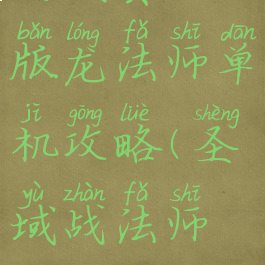 bǎn lóng fǎ shī dān
版龙法师单
jī gōng lüè shèng
机攻略(圣
yù zhàn fǎ shī
域战法师